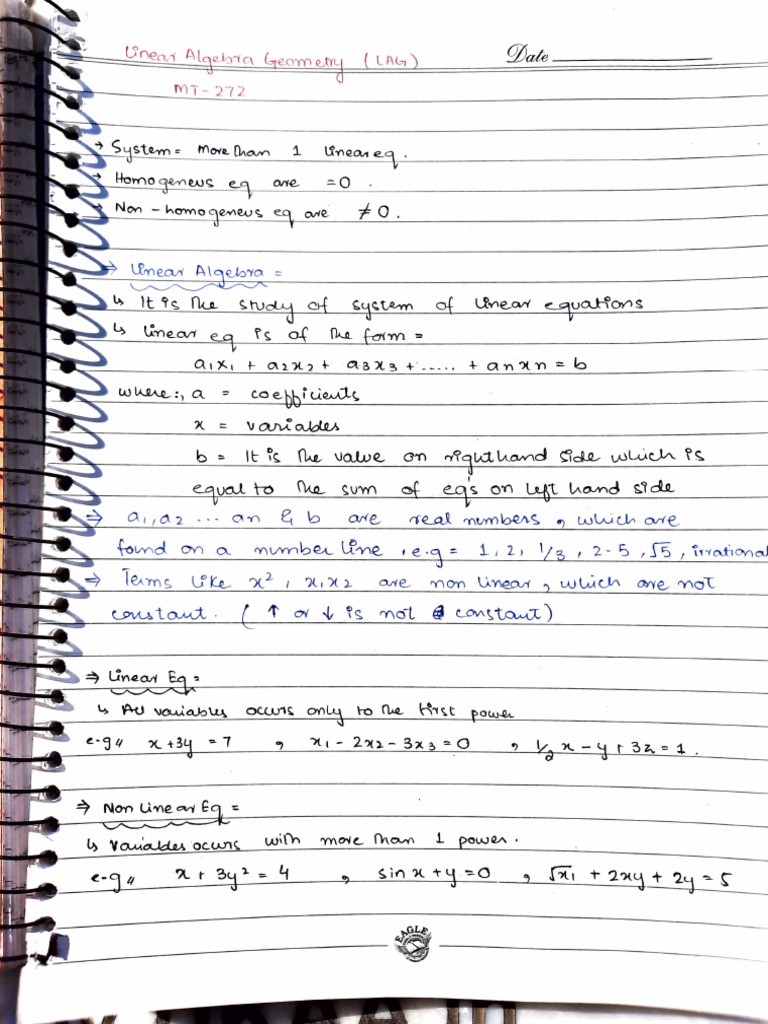 Linear Algebra Geometry (LAG)
Date
MT-272
→ System = More than 1 linear eq.
→ Homogeneus eq are = 0.
→ Non-homogeneus eq are ≠ 0.
⇒ Linear Algebra =
↳ It is the study of system of linear equations
↳ linear eq is of the form =
a1x1 + a2x2 + a3x3 + ..... + anxn = b
where:, a = coefficients
x = variables
b = It is the value on right hand side which is
equal to the sum of eq's on left hand side
⇒ a1, a2 ... an & b are real numbers, which are
found on a number line, e.g = 1, 2, 1/3, 2.5, √5, irrational
⇒ Terms like x², x1x2 are non linear, which are not
constant. (↑ or ↓ is not constant)
⇒ Linear Eq =
↳ All variables occurs only to the first power
e.g,, x + 3y = 7 , x1 - 2x2 - 3x3 = 0 , 1/2 x - y + 3z = 1.
⇒ Non Linear Eq =
↳ Variables occurs with more than 1 power.
e.g,, x + 3y² = 4 , sin x + y = 0 , √x1 + 2xy + 2y = 5
EAGLE